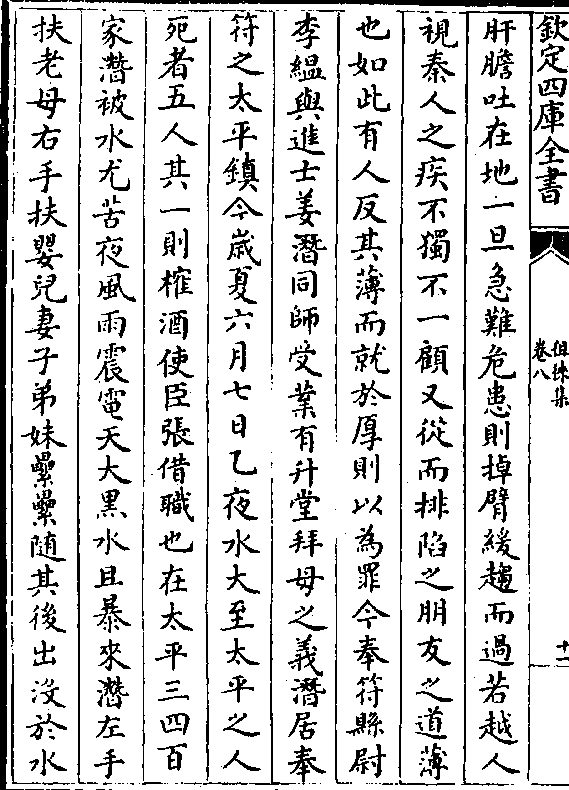 欽定四庫全書
徂徠集
卷八
十一
肝膽吐在地一旦急難危患則掉臂緩趨而過若越人
視秦人之疾不獨不一顧又從而排陷之朋友之道薄
也如此有人反其薄而就於厚則以為罪今奉符縣尉
李縕與進士姜潛同師受業有升堂拜母之義潛居奉
符之太平鎮今嵗夏六月七日乙夜水大至太平之人
死者五人其一則榷酒使臣張借職也在太平三四百
家潛被水尤苦夜風雨震電天大黒水且暴來潛左手
扶老母右手扶嬰兒妻子弟妹纍纍随其後出沒於水